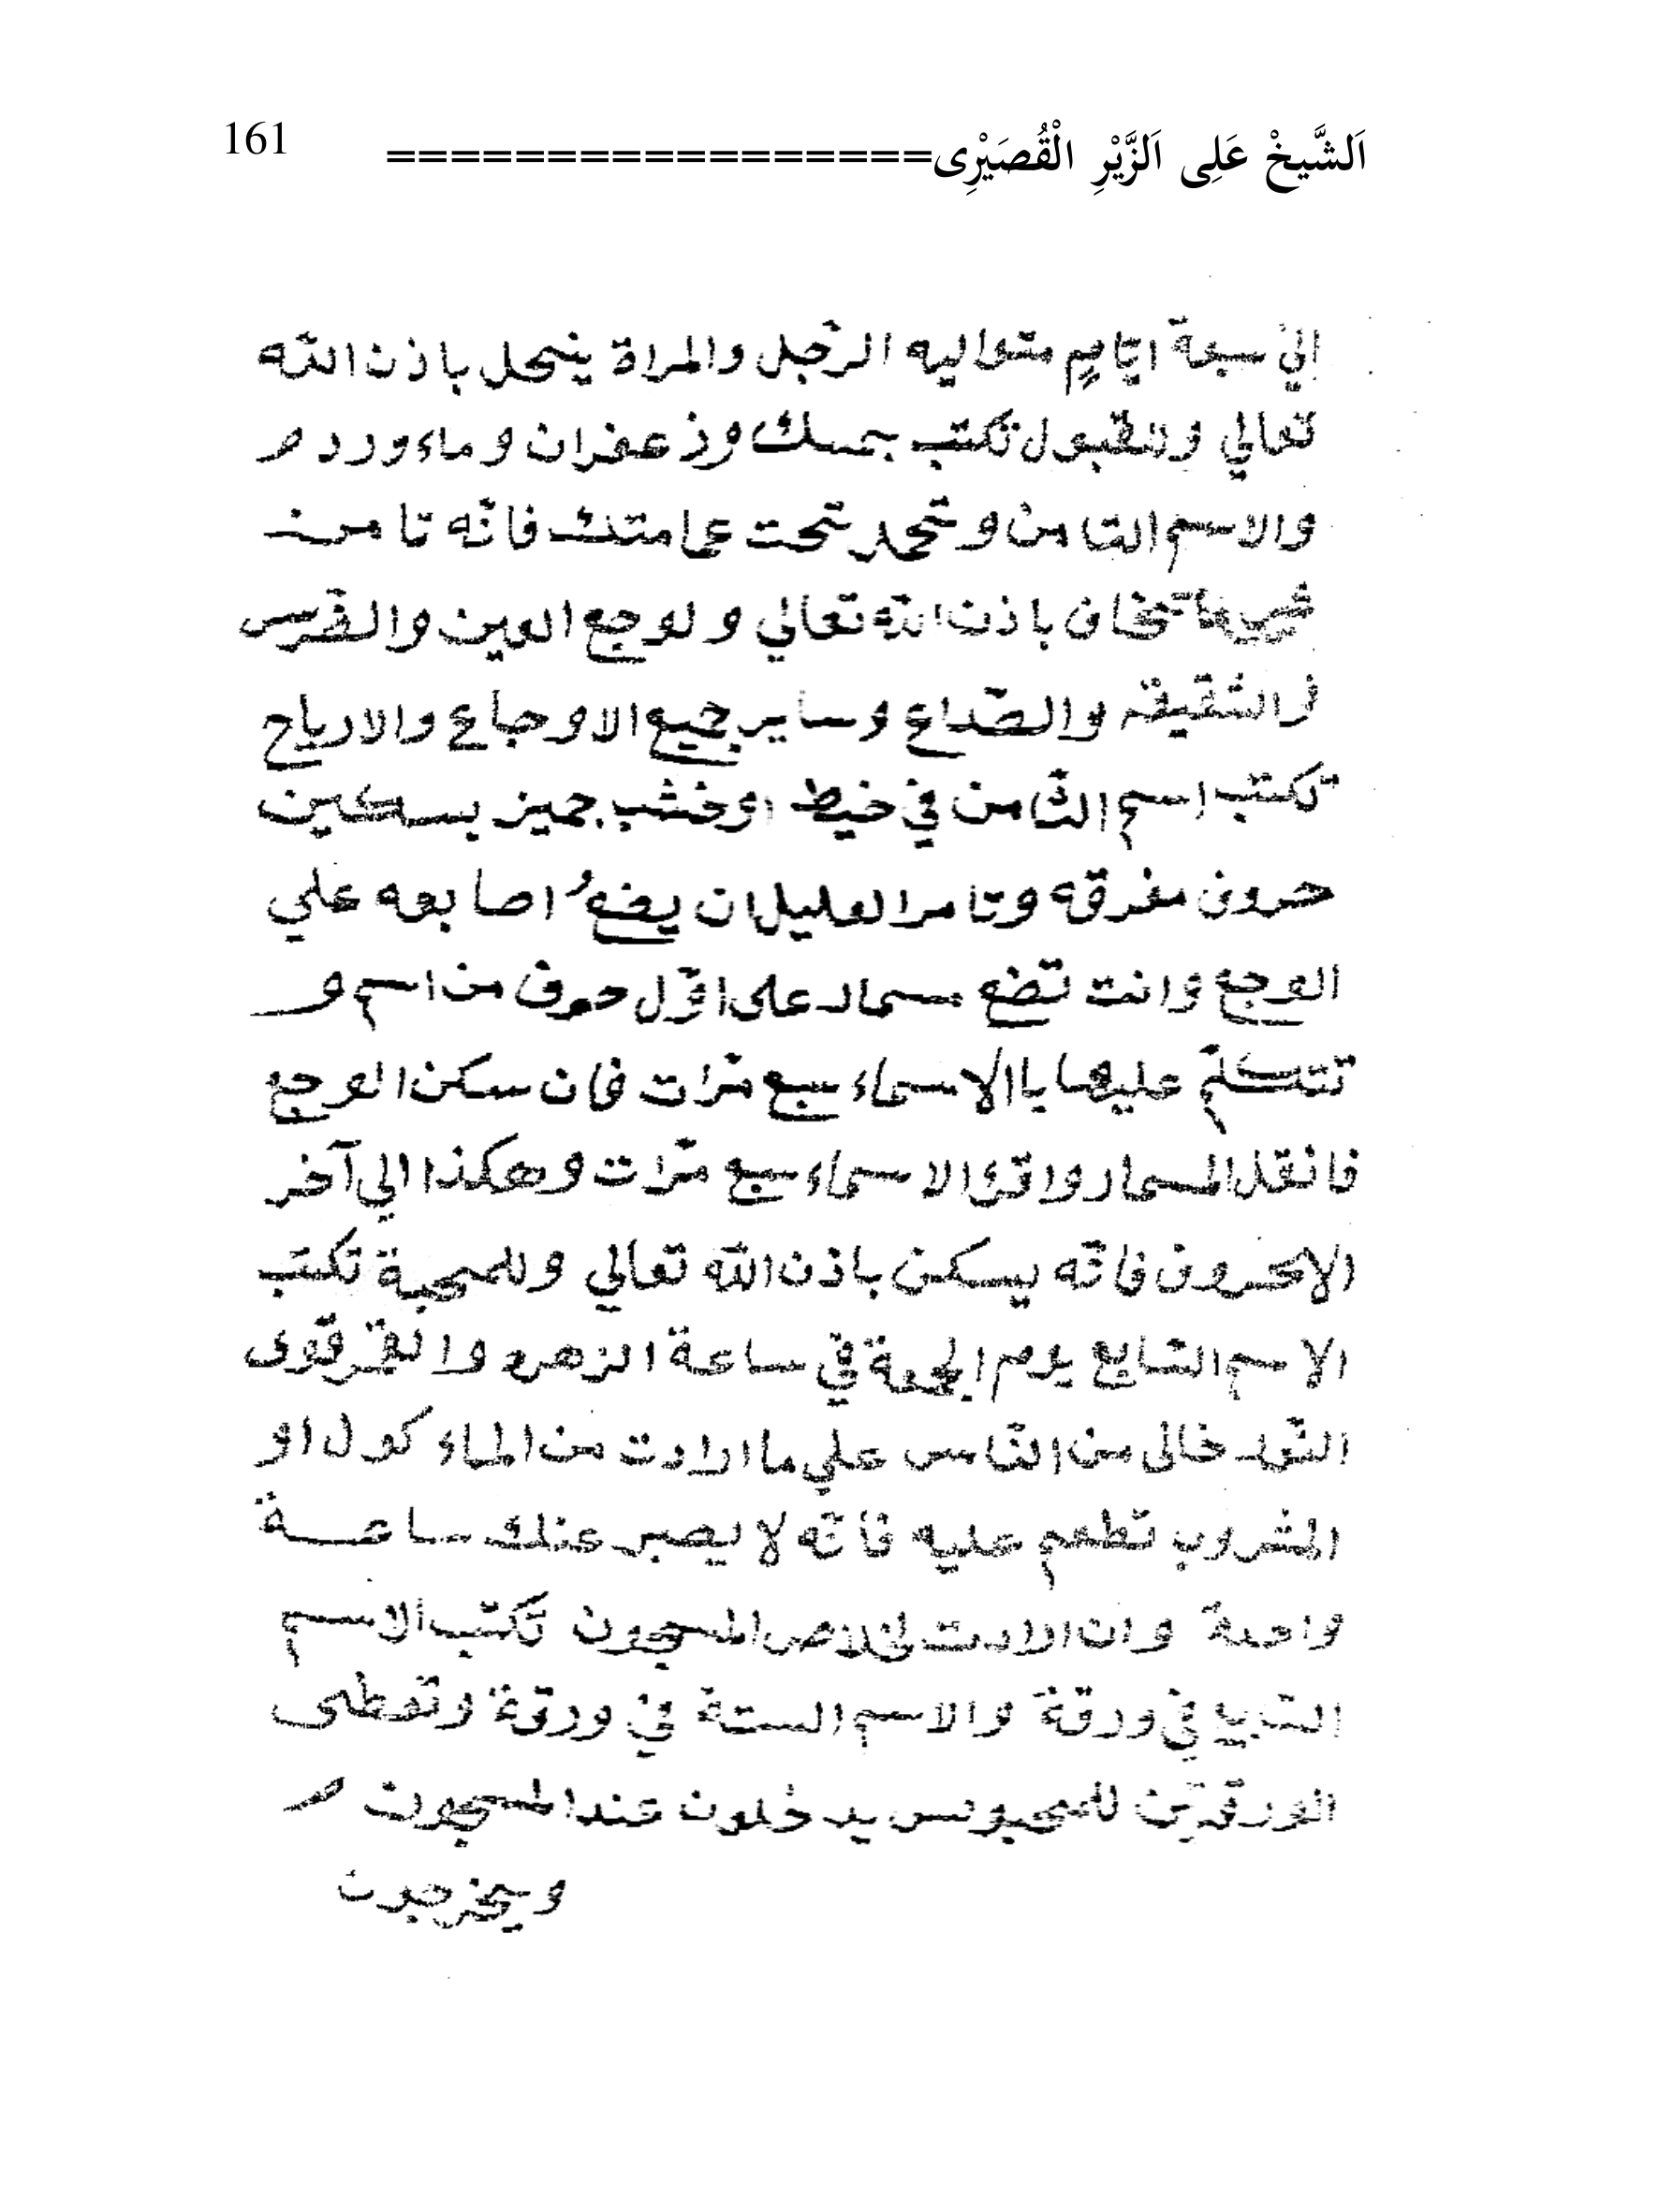 اَلشَّيخْ عَلِى اَلزَّيْرِ الْقُصَيْرِى================= 161
الي سبعة ايّامٍ متواليه الرّجل والمراة ينحل باذن الله
تعالي وللقبول تكتب بمسك وزعفران وماء ورد
والاسم الثامن وتحمله تحت عمامتك فانّه تامن
تخاف باذن الله تعالي ولوجع العين والضّرس
والشّقيقة والصّداع وساير جميع الاوجاع والارياح
تكتب اسم الثّامن في خيط اوخشب جميز بسكين
حروف مفرقه وتامر العليل ان يضعُ اصابعه علي
الوجع وانت تضع مسمار على اوّل حرف من اسم و
تتكلّم عليها باالاسماء سبع مرّات فان سكن الوجع
فانقل المسمار واقرء الاسماء سبع مرّات وهكذا الي آخر
الاحروف فانّه يسكن باذن الله تعالي وللمحبة تكتب
الاسم السّابع يوم الجمعة في ساعة الزهره والقمر قوى
النّور خالى من النّاس علي ما اردت من الماء كول او
المشروب تطعم عليه فانّه لا يصبر عنك ساعة
واحدة وان اردت لخلاص المسجون تكتب الاسم
السّابع في ورقة والاسم الستة في ورقة وتعطى
الورقتين للمحبوس يدخلون عند المسجون
ويخرجون